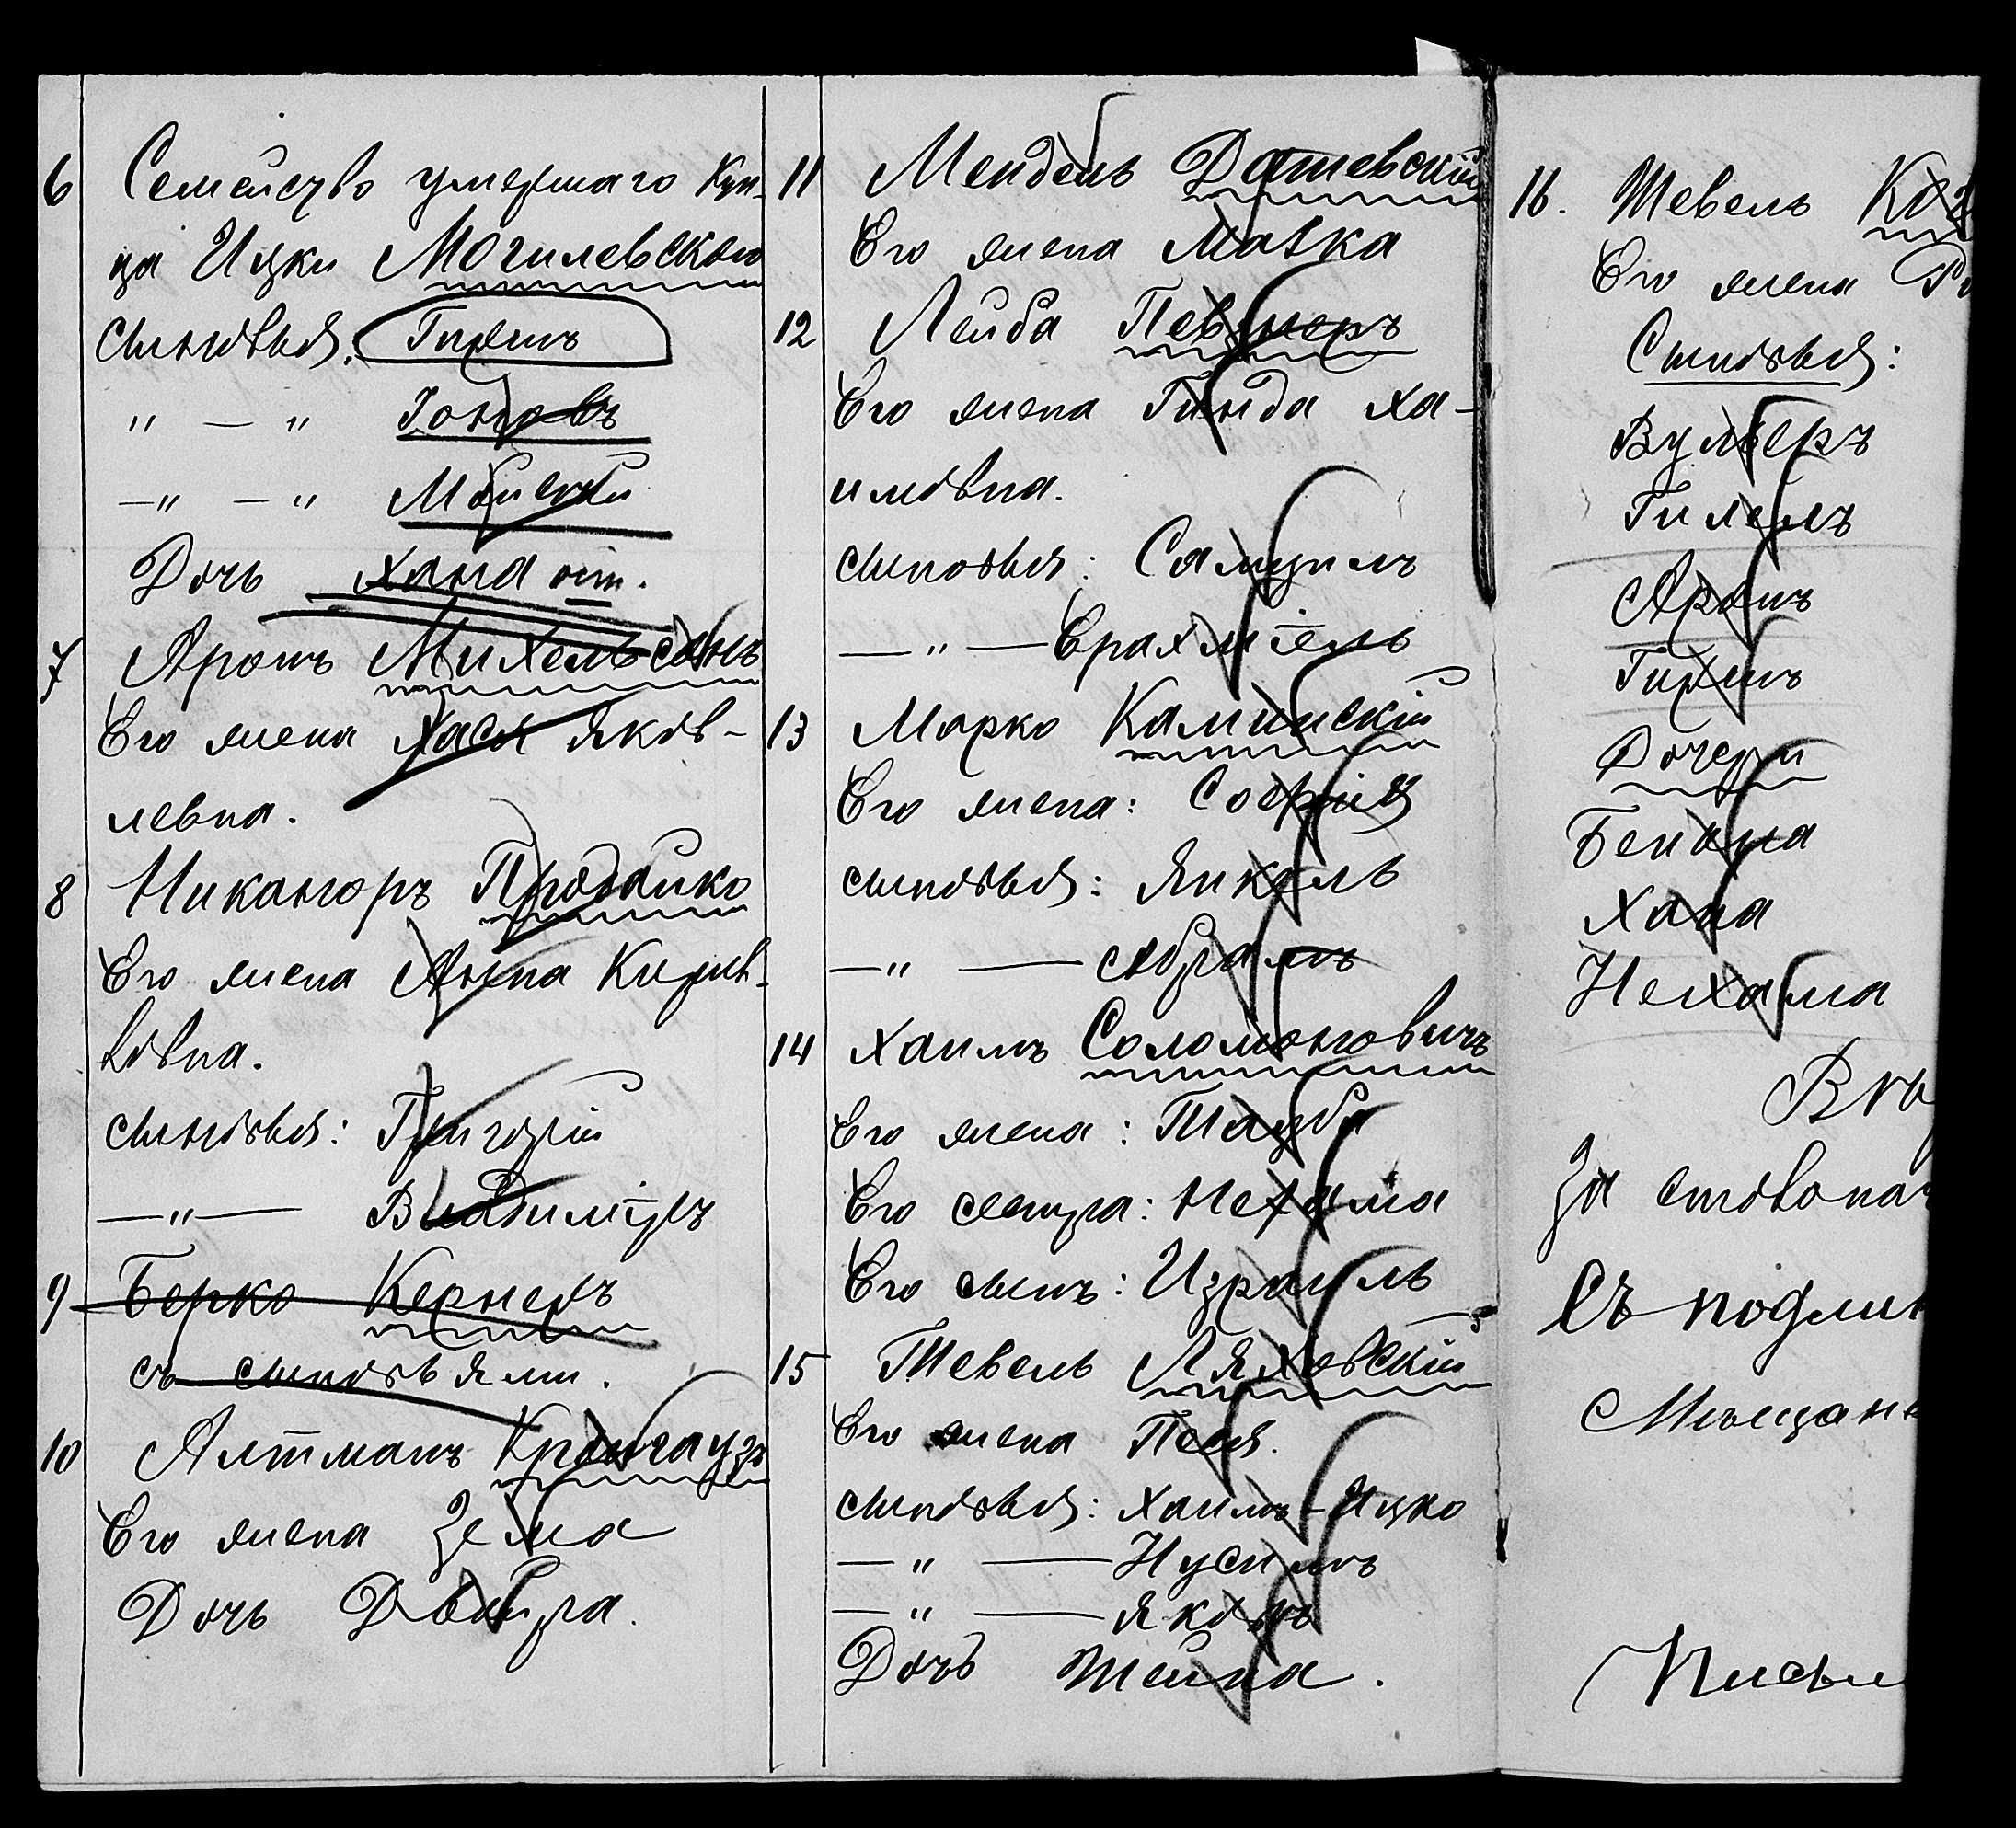 6 Семейство умершаго Куп-
ца Ицки Могилевскаго
сыновья: Гиршъ
" — " Іоновъ
—" — " Мойсей
Дочь Хана
7 Аронъ Михельсонъ
Его жена Хася Яков-
левна.
8 Никаноръ Продайко
Его жена Анна Кирив-
ковна.
сыновья: Григорій
—"— Владиміръ
9 Берко Кернеръ
съ сыновьями.
10 Алтманъ Кронгаузъ
Его жена Зема
Дочь Двейра.
11 Мендель Дашевскій
Его жена Малка
12 Лейба Певзнеръ
Его жена Гинда Ха-
имовна.
сыновья: Самуилъ
—"— Ерахміель
13 Марко Каминскій
Его жена: Софія
сыновья: Янкель
—" — Абрамъ
14 Хаимъ Соломоновичъ
Его жена: Тауба
Его сестра: Нехама
Его сынъ: Израиль
15 Тевель Ляховскій
Его жена Песя.
сыновья: Хаимъ-Ицко
—" — Нусимъ
—" — Яковъ
Дочь Шейна.
16. Шевель
Его жена
Сыновья:
Вульфъ
Гилель
Аронъ
Гиршъ
Дочери
Бейла
Хана
Нехама
За
Съ подлин
Мѣщан